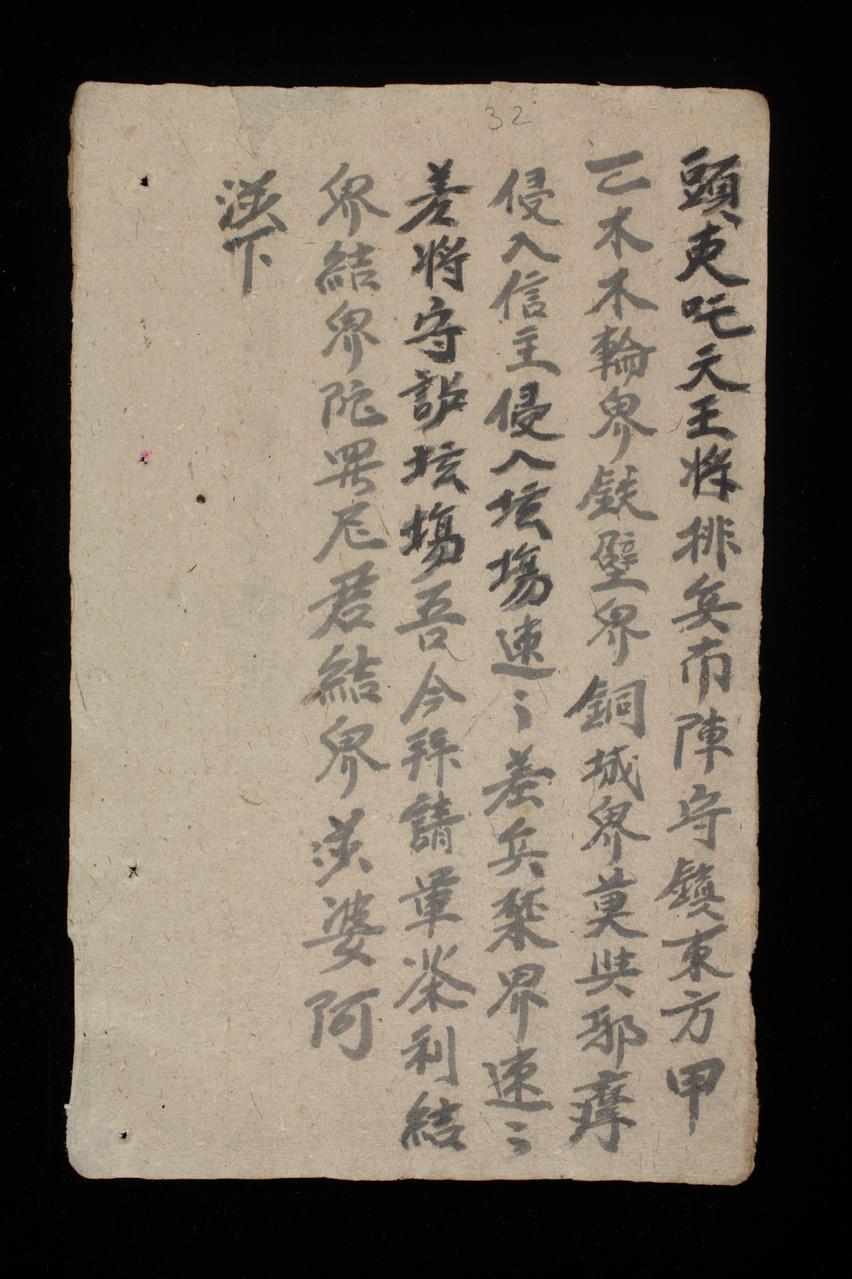 32
頭吏吒天王將排兵布陣守鎮東方甲
乙木木輪界鉄壁界銅城界莫與邪
侵入信主侵入坛塲速〻差兵界速〻
差將守坛塲吾今拜請軍茶利結
界結界陀畀尼君結界婆阿
下